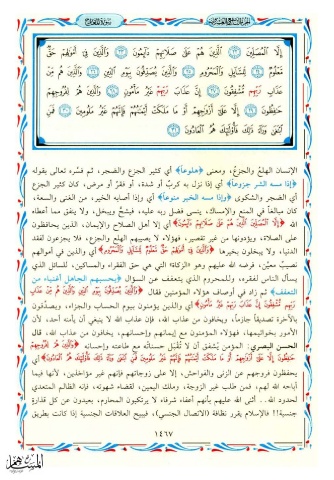 إِلَّا الْمُصَلِّينَ ﴿٢٢﴾ الَّذِينَ هُمْ عَلَى صَلَاتِهِمْ دَائِمُونَ ﴿٢٣﴾ وَالَّذِينَ فِي أَمْوَالِهِمْ حَقٌّ
مَعْلُومٌ ﴿٢٤﴾ لِلسَّائِلِ وَالْمَحْرُومِ ﴿٢٥﴾ وَالَّذِينَ يُصَدِّقُونَ بِيَوْمِ الدِّينِ ﴿٢٦﴾ وَالَّذِينَ هُمْ مِنْ
عَذَابِ رَبِّهِمْ مُشْفِقُونَ ﴿٢٧﴾ إِنَّ عَذَابَ رَبِّهِمْ غَيْرُ مَأْمُونٍ ﴿٢٨﴾ وَالَّذِينَ هُمْ لِفُرُوجِهِمْ
حَافِظُونَ ﴿٢٩﴾ إِلَّا عَلَى أَزْوَاجِهِمْ أَوْ مَا مَلَكَتْ أَيْمَانُهُمْ فَإِنَّهُمْ غَيْرُ مَلُومِينَ ﴿٣٠﴾ فَمَنِ
ابْتَغَى وَرَاءَ ذَلِكَ فَأُولَئِكَ هُمُ الْعَادُونَ ﴿٣١﴾
الإنسان الهلعُ والجزعُ، ومعنى ﴿هلوعاً﴾ أي كثير الجزع والضجر، ثم فسَّره تعالى بقوله
﴿إذا مسه الشر جزوعاً﴾ أي إذا نزل به كربٌ أو شدة، أو فقرٌ أو مرض، كان كثير الجزع
أي الضجر والشكوى ﴿وإذا مسه الخير منوعاً﴾ أي وإذا أصابه الخير، من الغنى والسعة،
كان مبالغاً في المنع والإمساك، ينسى فضل ربه عليه، فيشحُّ ويبخل، ولا ينفق مما أعطاه
الله ﴿إِلَّا الْمُصَلِّينَ الَّذِينَ هُمْ عَلَى صَلَاتِهِمْ دَائِمُونَ﴾ أي إلا أهل الصلاح والإيمان، الذين يحافظون
على الصلاة، ويؤدونها من غير تقصير، فهؤلاء لا يصيبهم الهلع والجزع، فلا يجزعون لفقد
الدنيا، ولا يبخلون بخيرها ﴿وَالَّذِينَ فِي أَمْوَالِهِمْ حَقٌّ مَعْلُومٌ لِلسَّائِلِ وَالْمَحْرُومِ﴾ أي والذين في أموالهم
نصيبٌ معيَّن، فرضه الله عليهم وهو «الزكاة» التي هي حق الفقراء والمساكين، للسائل الذي
يسأل الناس لفقره، وللمحروم الذي يتعفف عن السؤال ﴿يحسبهم الجاهل أغنياء من
التعفف﴾ ثم زاد في أوصاف هؤلاء المؤمنين فقال ﴿وَالَّذِينَ يُصَدِّقُونَ بِيَوْمِ الدِّينِ وَالَّذِينَ هُمْ مِنْ عَذَابِ
رَبِّهِمْ مُشْفِقُونَ إِنَّ عَذَابَ رَبِّهِمْ غَيْرُ مَأْمُونٍ﴾ أي والذين يؤمنون بيوم الحساب والجزاء، ويصدِّقون
بالآخرة تصديقاً جازماً، ويخافون من عذاب الله، فإن عذاب الله لا ينبغي أن يأمنه أحد، لأن
الأمور بخواتيمها، فهؤلاء المؤمنون مع إيمانهم وإحسانهم، يخافون من عذاب الله، قال
الحسن البصري: المؤمن يُشفق أن لا تُقْبل حسناتُه مع طاعته وإحسانه ﴿وَالَّذِينَ هُمْ لِفُرُوجِهِمْ
حَافِظُونَ إِلَّا عَلَى أَزْوَاجِهِمْ أَوْ مَا مَلَكَتْ أَيْمَانُهُمْ فَإِنَّهُمْ غَيْرُ مَلُومِينَ فَمَنِ ابْتَغَى وَرَاءَ ذَلِكَ فَأُولَئِكَ هُمُ الْعَادُونَ﴾ أي
يحفظون فروجهم عن الزنى والفواحش، إلا على زوجاتهم فإنهم غير مؤاخذين، لأنها فيما
أباحه الله لهم، فمن طلب غير الزوجة، وملك اليمين، لقضاء شهوته، فإنه الظالم المتعدي
لحدود الله.. أثنى الله عليهم بأنهم أعفاء شرفاء، لا يرتكبون المحارم، بعيدون عن كل قذارة
جنسية!! فالإسلام يقرر نظافة (الاتصال الجنسي)، فيبيح العلاقات الجنسية إذا كانت بطريق
١٤٦٧